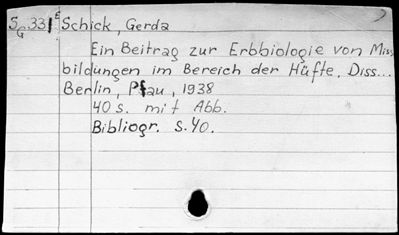 SG331E Schick, Gerda
Ein Beitrag zur Erbbiologie von Mis-
bildungen im Bereich der Hüfte. Diss...
Berlin, Pfau, 1938
40 S. mit Abb.
Bibliogr. S.40.